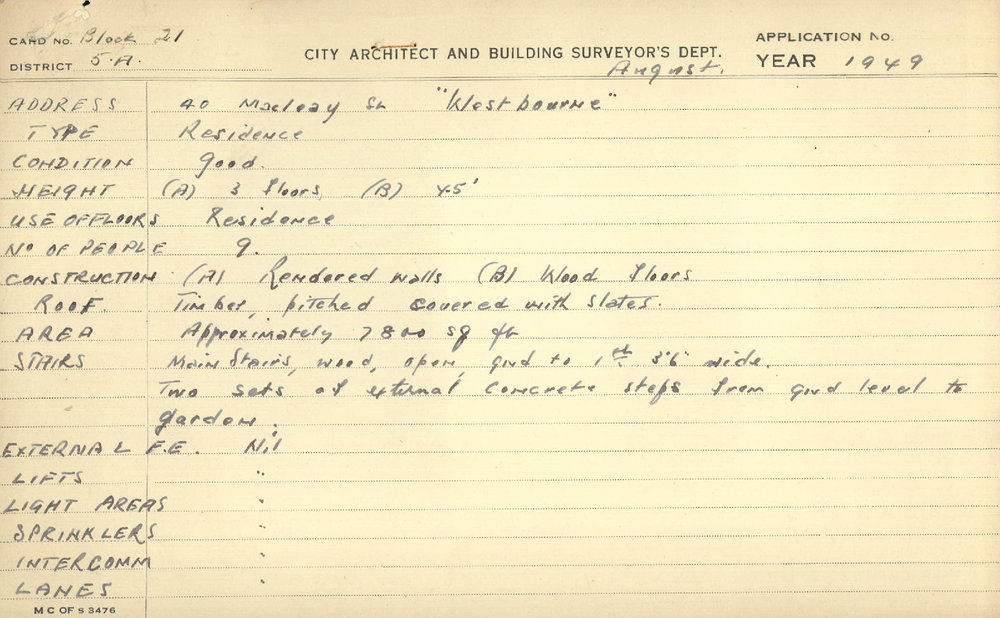 CARD NO. Block 21
DISTRICT 5.A.
CITY ARCHITECT AND BUILDING SURVEYOR'S DEPT.
August.
APPLICATION NO.
YEAR 1949
ADDRESS 40 Macleay St "Westbourne"
TYPE Residence
CONDITION Good.
HEIGHT (A) 3 floors (B) 45'
USE OF FLOORS Residence
No OF PEOPLE 9.
CONSTRUCTION (A) Rendered walls (B) Wood floors
ROOF. Timber, pitched covered with slates.
AREA Approximately 7800 sq ft
STAIRS Main Stairs, wood, open, gnd to 1st 3'6" wide.
Two sets of external concrete steps from gnd level to
garden.
EXTERNAL F.E. Nil
LIFTS "
LIGHT AREAS "
SPRINKLERS "
INTERCOMM "
LANES "
M C OF S 3476